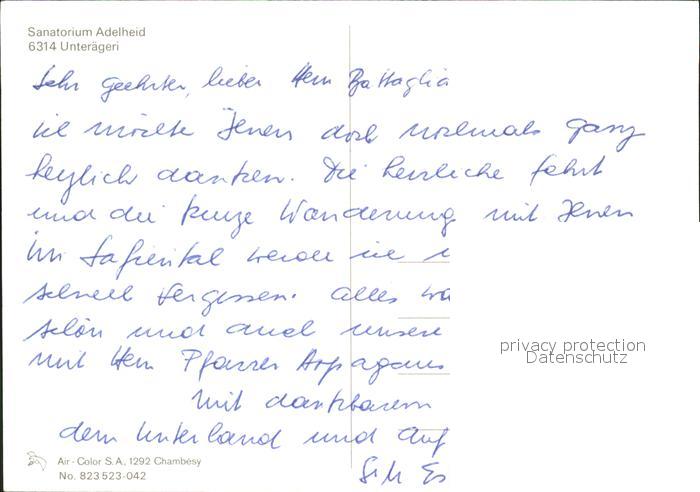 Sanatorium Adelheid
6314 Unterägeri
Sehr geehrter, lieber Herr Battaglia
ich möchte Ihnen doch nochmals ganz
herzlich danken. Die herrliche Fahrt
und die kurze Wanderung mit Ihnen
im Safiental werde ich
schnell vergessen. Alles wa
schön und auch unsere
mit Herr Pfarrer Arpagaus
Mit dankbarem
dem Unterland und auf
privacy protection
Datenschutz
Air-Color S.A., 1292 Chambésy
No. 823 523-042